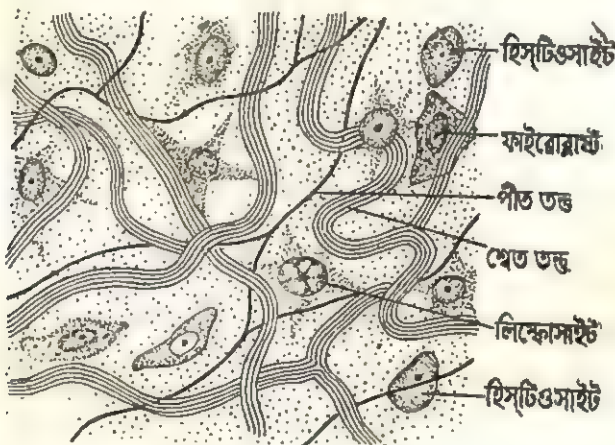 হিস্‌টিওসাইট
ফাইব্রোব্লাস্ট
পীত তন্তু
শ্বেত তন্তু
লিম্ফোসাইট
হিস্‌টিওসাইট